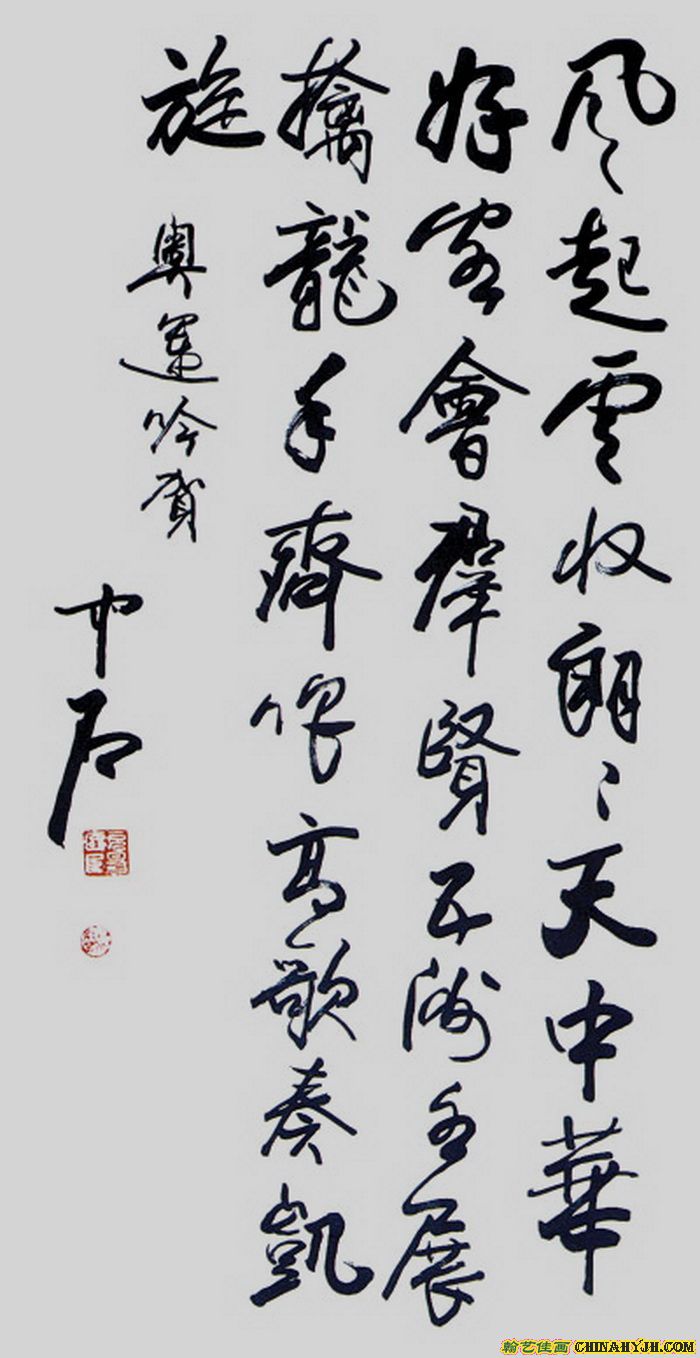 风起雲收朗〻天中華
好客會羣賢五洲各展
擒龍手齊作高歌奏凱
旋
奧運吟賀
中石
翰艺佳画 CHINAHYJH.COM